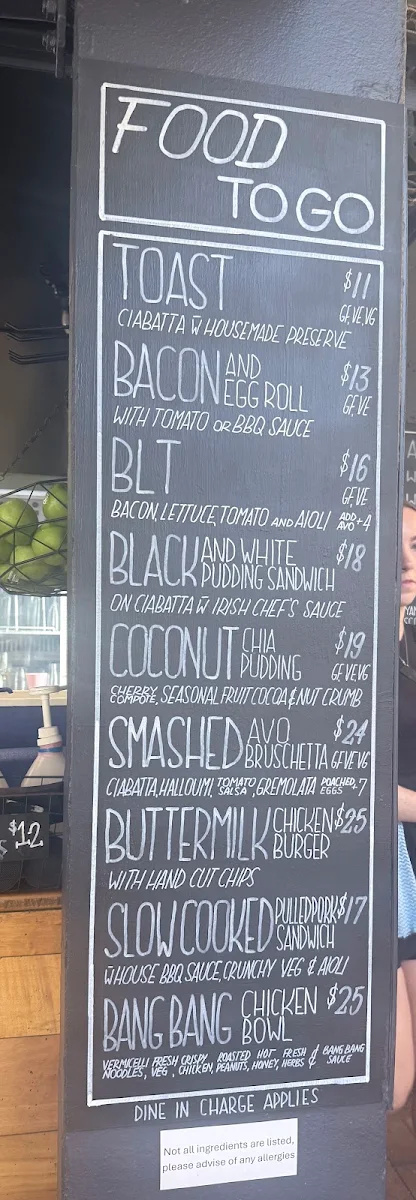 FOOD
TO GO
TOAST $11
GF, VE, VG
CIABATTA W̄ HOUSEMADE PRESERVE
BACON AND EGG ROLL $13
GF, VE
WITH TOMATO OR BBQ SAUCE
BLT $16
GF, VE
BACON, LETTUCE, TOMATO AND AIOLI ADD AVO +4
BLACK AND WHITE PUDDING SANDWICH $18
ON CIABATTA W̄ IRISH CHEF'S SAUCE
COCONUT CHIA PUDDING $19
GF VE VG
CHERRY COMPOTE, SEASONAL FRUIT COCOA & NUT CRUMB
SMASHED AVO BRUSCHETTA $24
GF VE VG
CIABATTA, HALLOUMI, TOMATO SALSA, GREMOLATA POACHED EGGS +7
BUTTERMILK CHICKEN BURGER $25
WITH HAND CUT CHIPS
SLOW COOKED PULLED PORK SANDWICH $17
W̄ HOUSE BBQ SAUCE, CRUNCHY VEG & AIOLI
BANG BANG CHICKEN BOWL $25
VERMICELLI NOODLES, FRESH CRISPY VEG, CHICKEN, ROASTED PEANUTS, HOT HONEY, FRESH HERBS & BANG BANG SAUCE
DINE IN CHARGE APPLIES
Not all ingredients are listed,
please advise of any allergies
$12